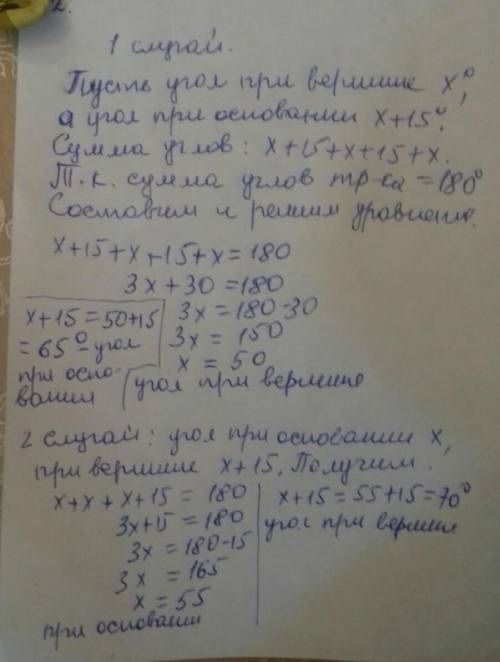 2.
1 случай.
Пусть угол при вершине x°,
а угол при основании x+15°.
Сумма углов: x+15+x+15+x.
Т.к. сумма углов тр-ка =180°
Составим и решим уравнение.
x+15+x+15+x=180
3x+30=180
3x=180-30
3x=150
x=50
угол при вершине
x+15=50+15
=65° - угол
при осно-
вании
2 случай: угол при основании x,
при вершине x+15. Получим.
x+x+x+15=180
3x+15=180
3x=180-15
3x=165
x=55
при основании
x+15=55+15=70°
угол при вершине